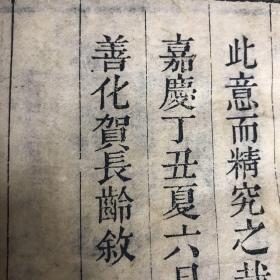 此意而精究之哉
嘉慶丁丑夏六月
善化賀長齡敘